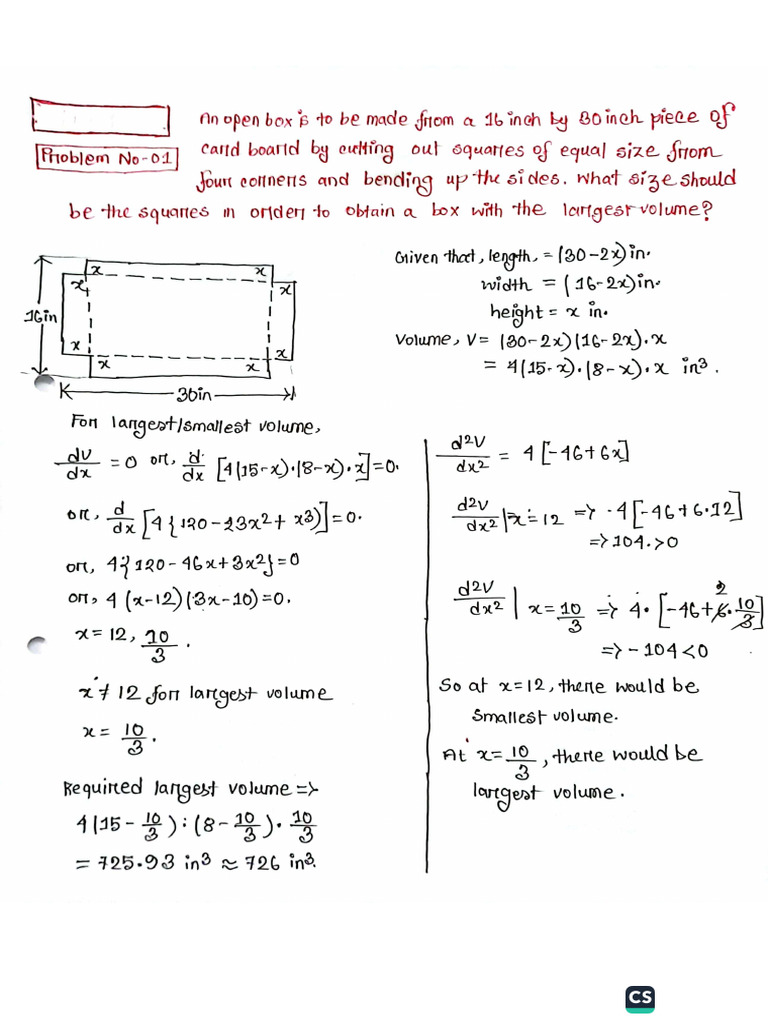 An open box is to be made from a 16 inch by 30 inch piece of
Problem No-01
card board by cutting out squares of equal size from
four corners and bending up the sides. What size should
be the squares in order to obtain a box with the largest volume?
x x
x x
16in
x x
x x
30in
Given that, length, = (30-2x)in.
width = (16-2x)in.
height = x in.
Volume, V = (30-2x)(16-2x).x
= 4(15-x).(8-x).x in³.
For largest/smallest volume,
dV/dx = 0 or, d/dx [4(15-x).(8-x).x]=0.
or, d/dx [4{120-23x²+x³}]=0.
or, 4{120-46x+3x²}=0
or, 4(x-12)(3x-10)=0.
x=12, 10/3.
x≠12 for largest volume
x = 10/3.
Required largest volume =>
4(15-10/3):(8-10/3).10/3
= 725.93 in³ ≈ 726 in³.
d²V/dx² = 4[-46+6x]
d²V/dx²|x=12 => 4[-46+6.12]
=> 104.>0
d²V/dx²|x=10/3 => 4.[-46+6.10/3] 2
=> -104<0
So at x=12, there would be
smallest volume.
At x=10/3, there would be
largest volume.
CS